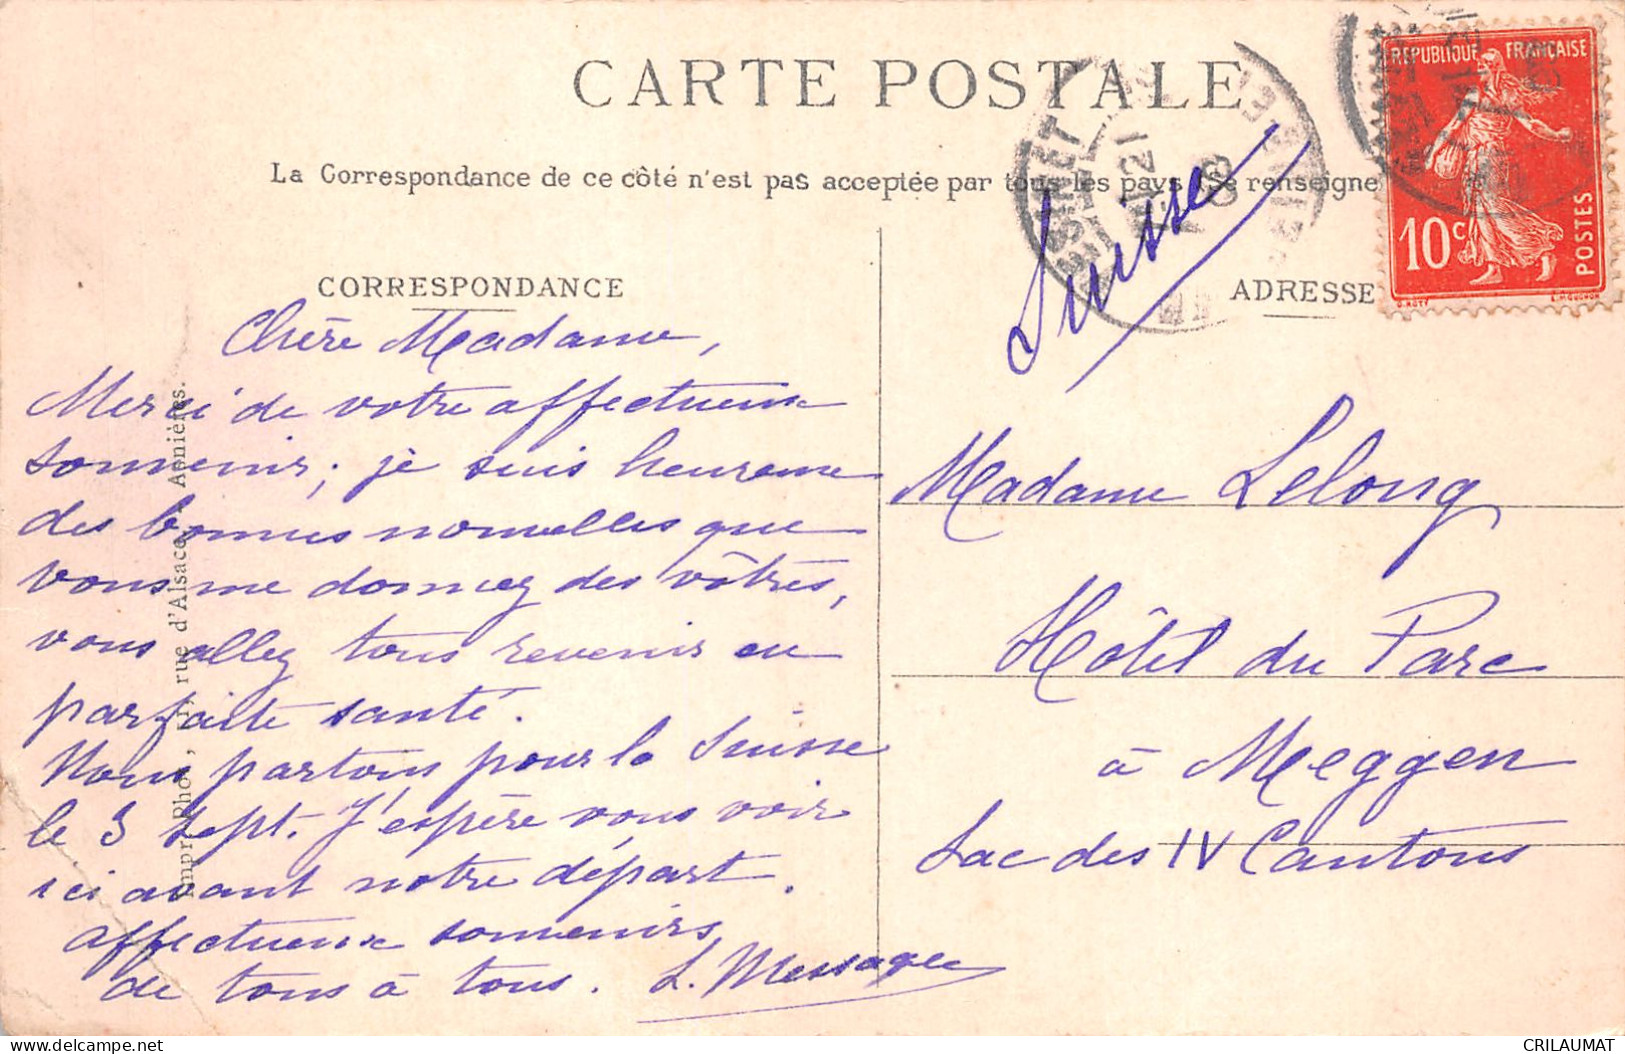 CARTE POSTALE
La Correspondance de ce côté n'est pas acceptée par tous les pays (Se renseigne
REPUBLIQUE FRANÇAISE
10c
POSTES
Suisse
CORRESPONDANCE
ADRESSE
Chère Madame,
Merci de votre affectueux
souvenir ; je suis heureuse
des bonnes nouvelles que
vous me donnez des vôtres,
vous allez tous revenir en
parfaite santé.
Nous partons pour la Suisse
le 3 sept. J'espère vous voir
ici avant notre départ.
affectueux souvenirs
de tous à tous. L. Messager
Madame Lelong
Hôtel du Parc
à Meggen
Lac des IV Cantons
rue d'Alsace, Asnières.
CRILAUMAT